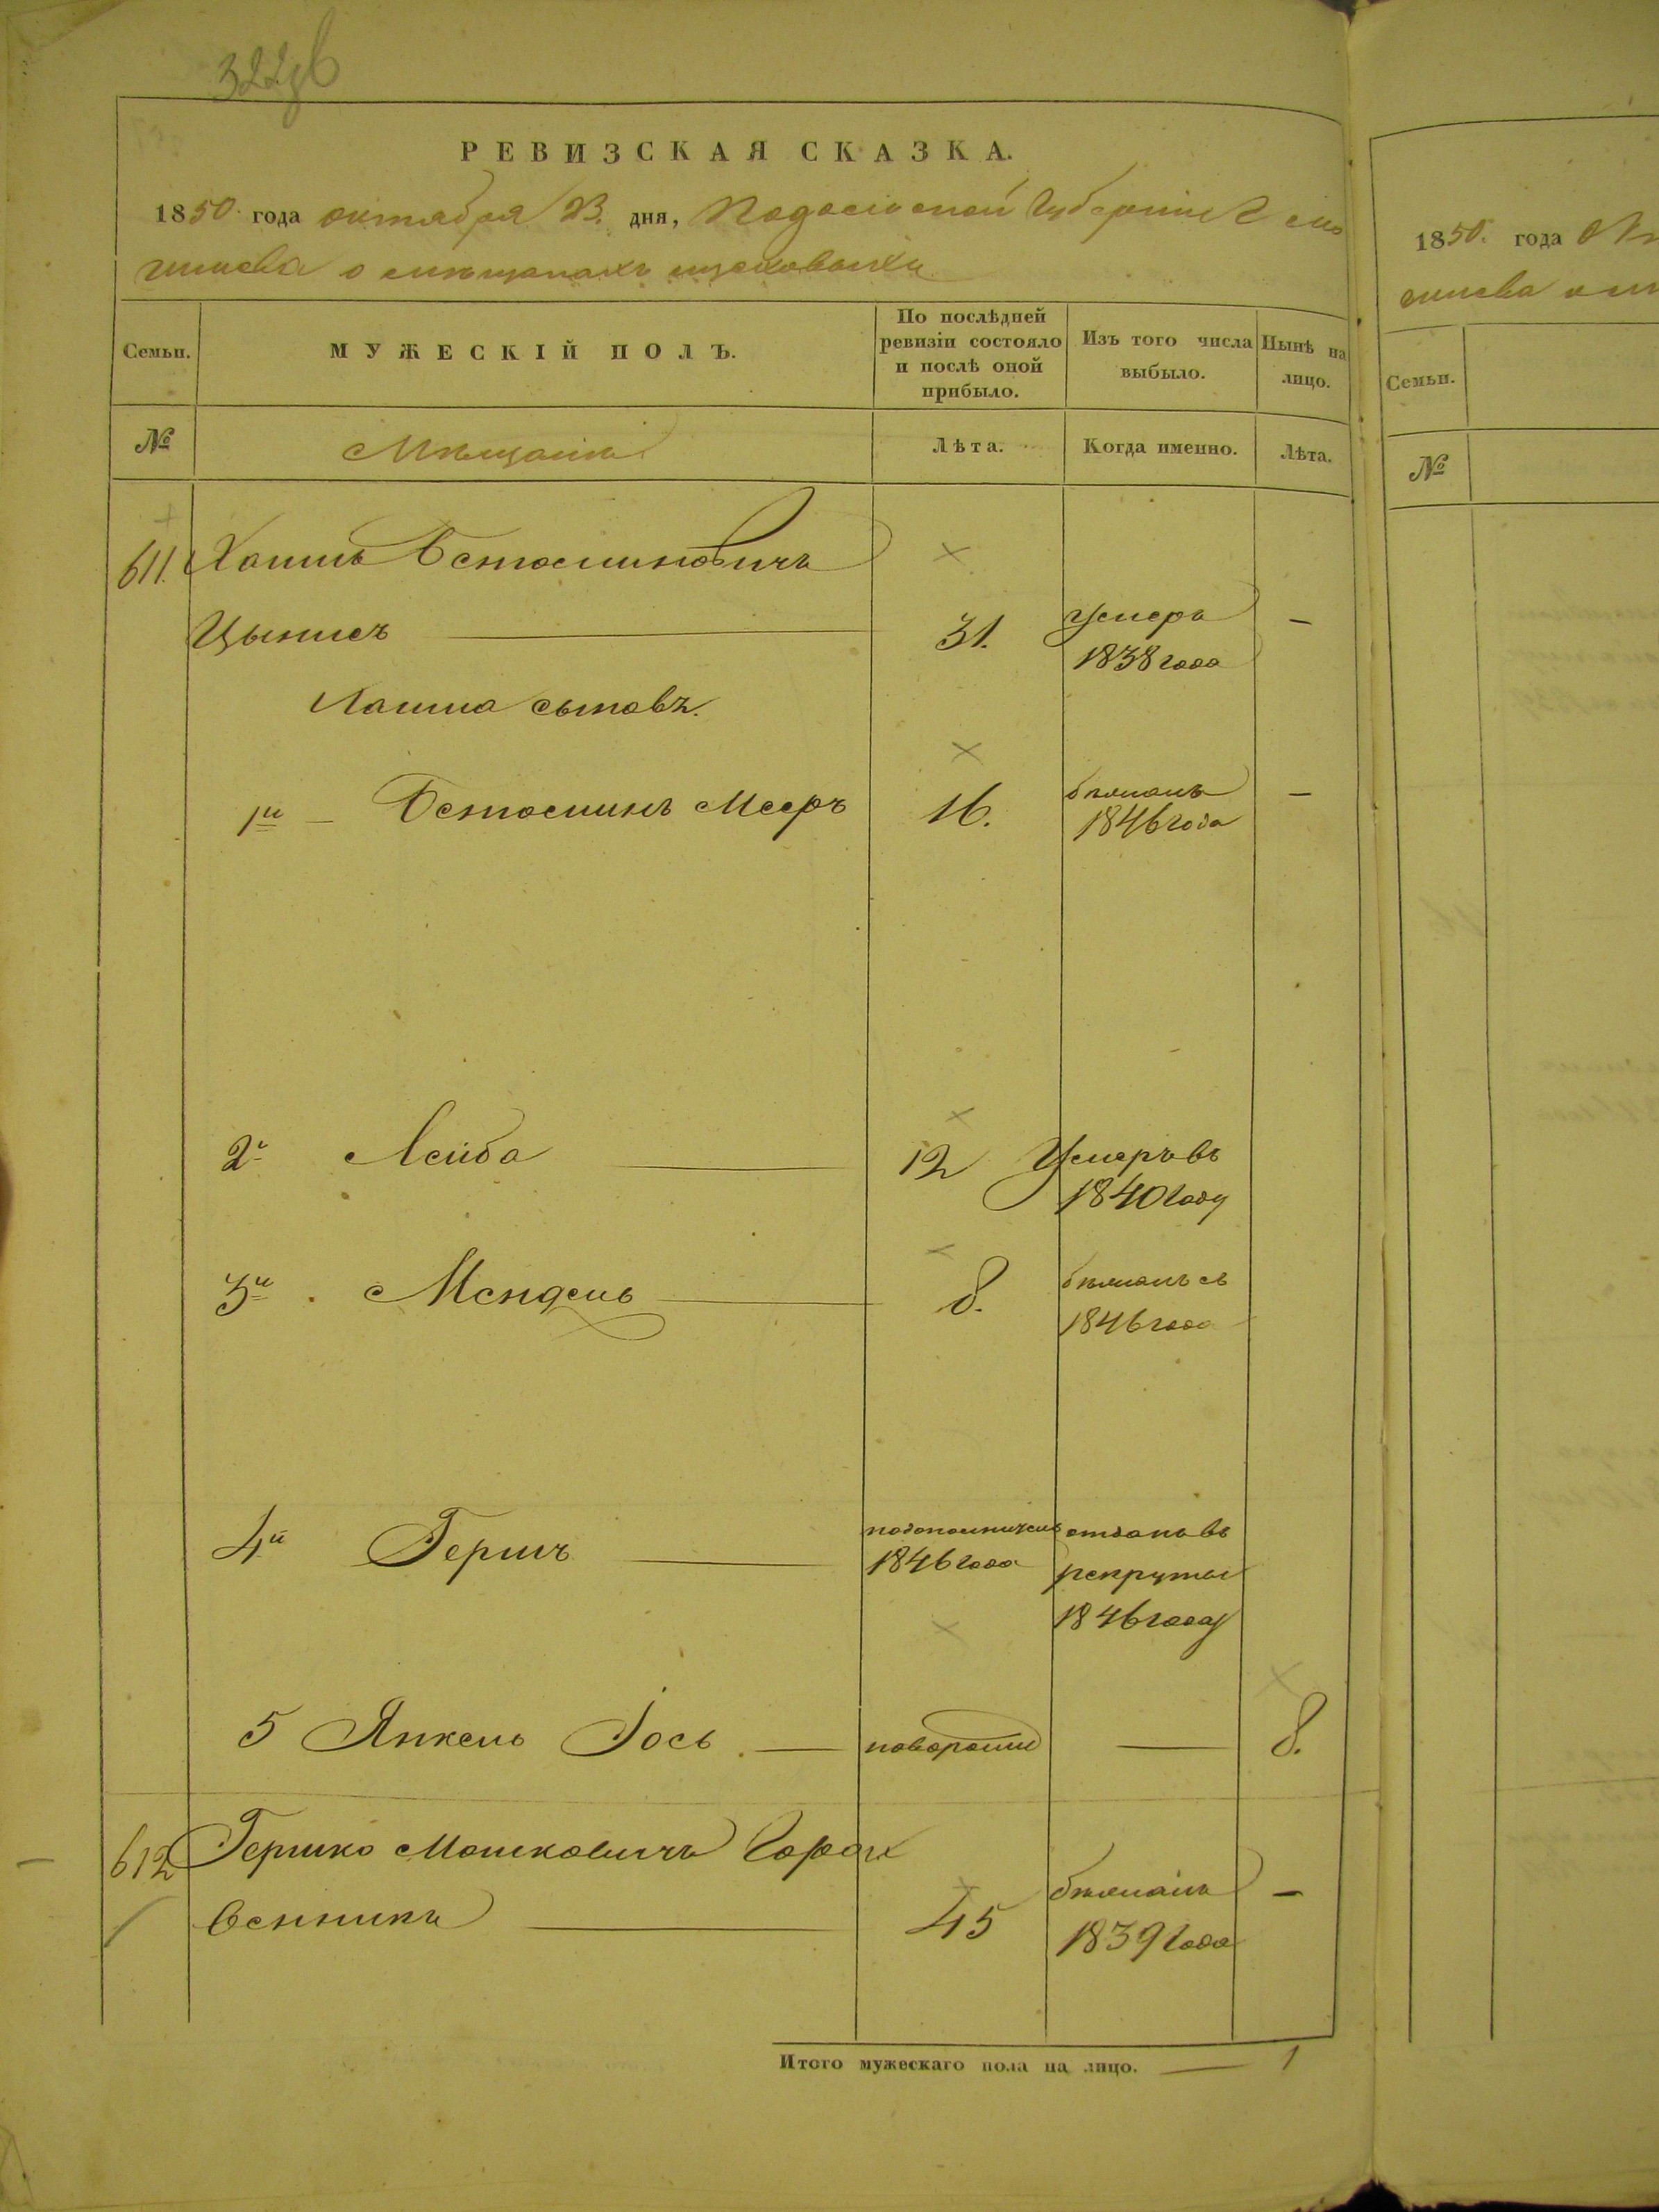 РЕВИЗСКАЯ СКАЗКА.
1850. года октября 23. дня, Подольской Губернiи
о мѣщанахъ
Семьи.
МУЖЕСКIЙ ПОЛЪ.
По послѣдней ревизiи состояло и послѣ оной прибыло.
Изъ того числа выбыло.
Нынѣ на лицо.
№
Мѣщане
Лѣта.
Когда именно.
Лѣта.
611. Хаимъ Беньяминовичъ
Цыписъ 31. умеръ —
1838 года
Хаима сыновъ.
1й — Беньяминъ Мееръ 16. бѣжалъ —
1846 года
2й Лейба 12 Умеръ въ
1840 году
3й Мендель 8. бѣжалъ съ
1846 года
4й Гершъ отданъ въ
1846 года рекруты
1846 году
5 Янкель Iось — 8.
612 Гершко Мошковичъ
45 бѣжалъ —
1839 года
Итого мужескаго пола на лицо. — 1
1850. года
Семьи.
№